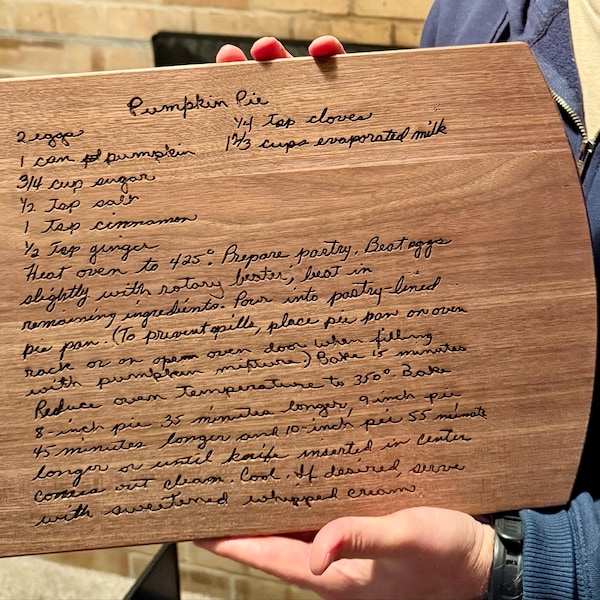 Pumpkin Pie
2 eggs
1 can pumpkin
3/4 cup sugar
1/2 Tsp salt
1 Tsp cinnamon
1/2 Tsp ginger
1/4 Tsp cloves
1 2/3 cups evaporated milk
Heat oven to 425°. Prepare pastry. Beat eggs
slightly with rotary beater; beat in
remaining ingredients. Pour into pastry-lined
pie pan. (To prevent spills, place pie pan on oven
rack or on open oven door when filling
with pumpkin mixture.) Bake 15 minutes
Reduce oven temperature to 350°. Bake
8-inch pie 35 minutes longer, 9 inch pie
45 minutes longer and 10-inch pie 55 minute
longer or until knife inserted in center
comes out clean. Cool. If desired, serve
with sweetened whipped cream.